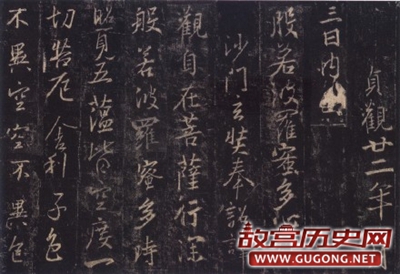 貞觀廿二年
三日内
般若波羅蜜多
沙門玄奘奉詔
觀自在菩薩行深
般若波羅蜜多時
照見五蘊皆空度一
切苦厄舍利子色
不異空空不異色
故宫历史网
WWW.GUGONG.NET